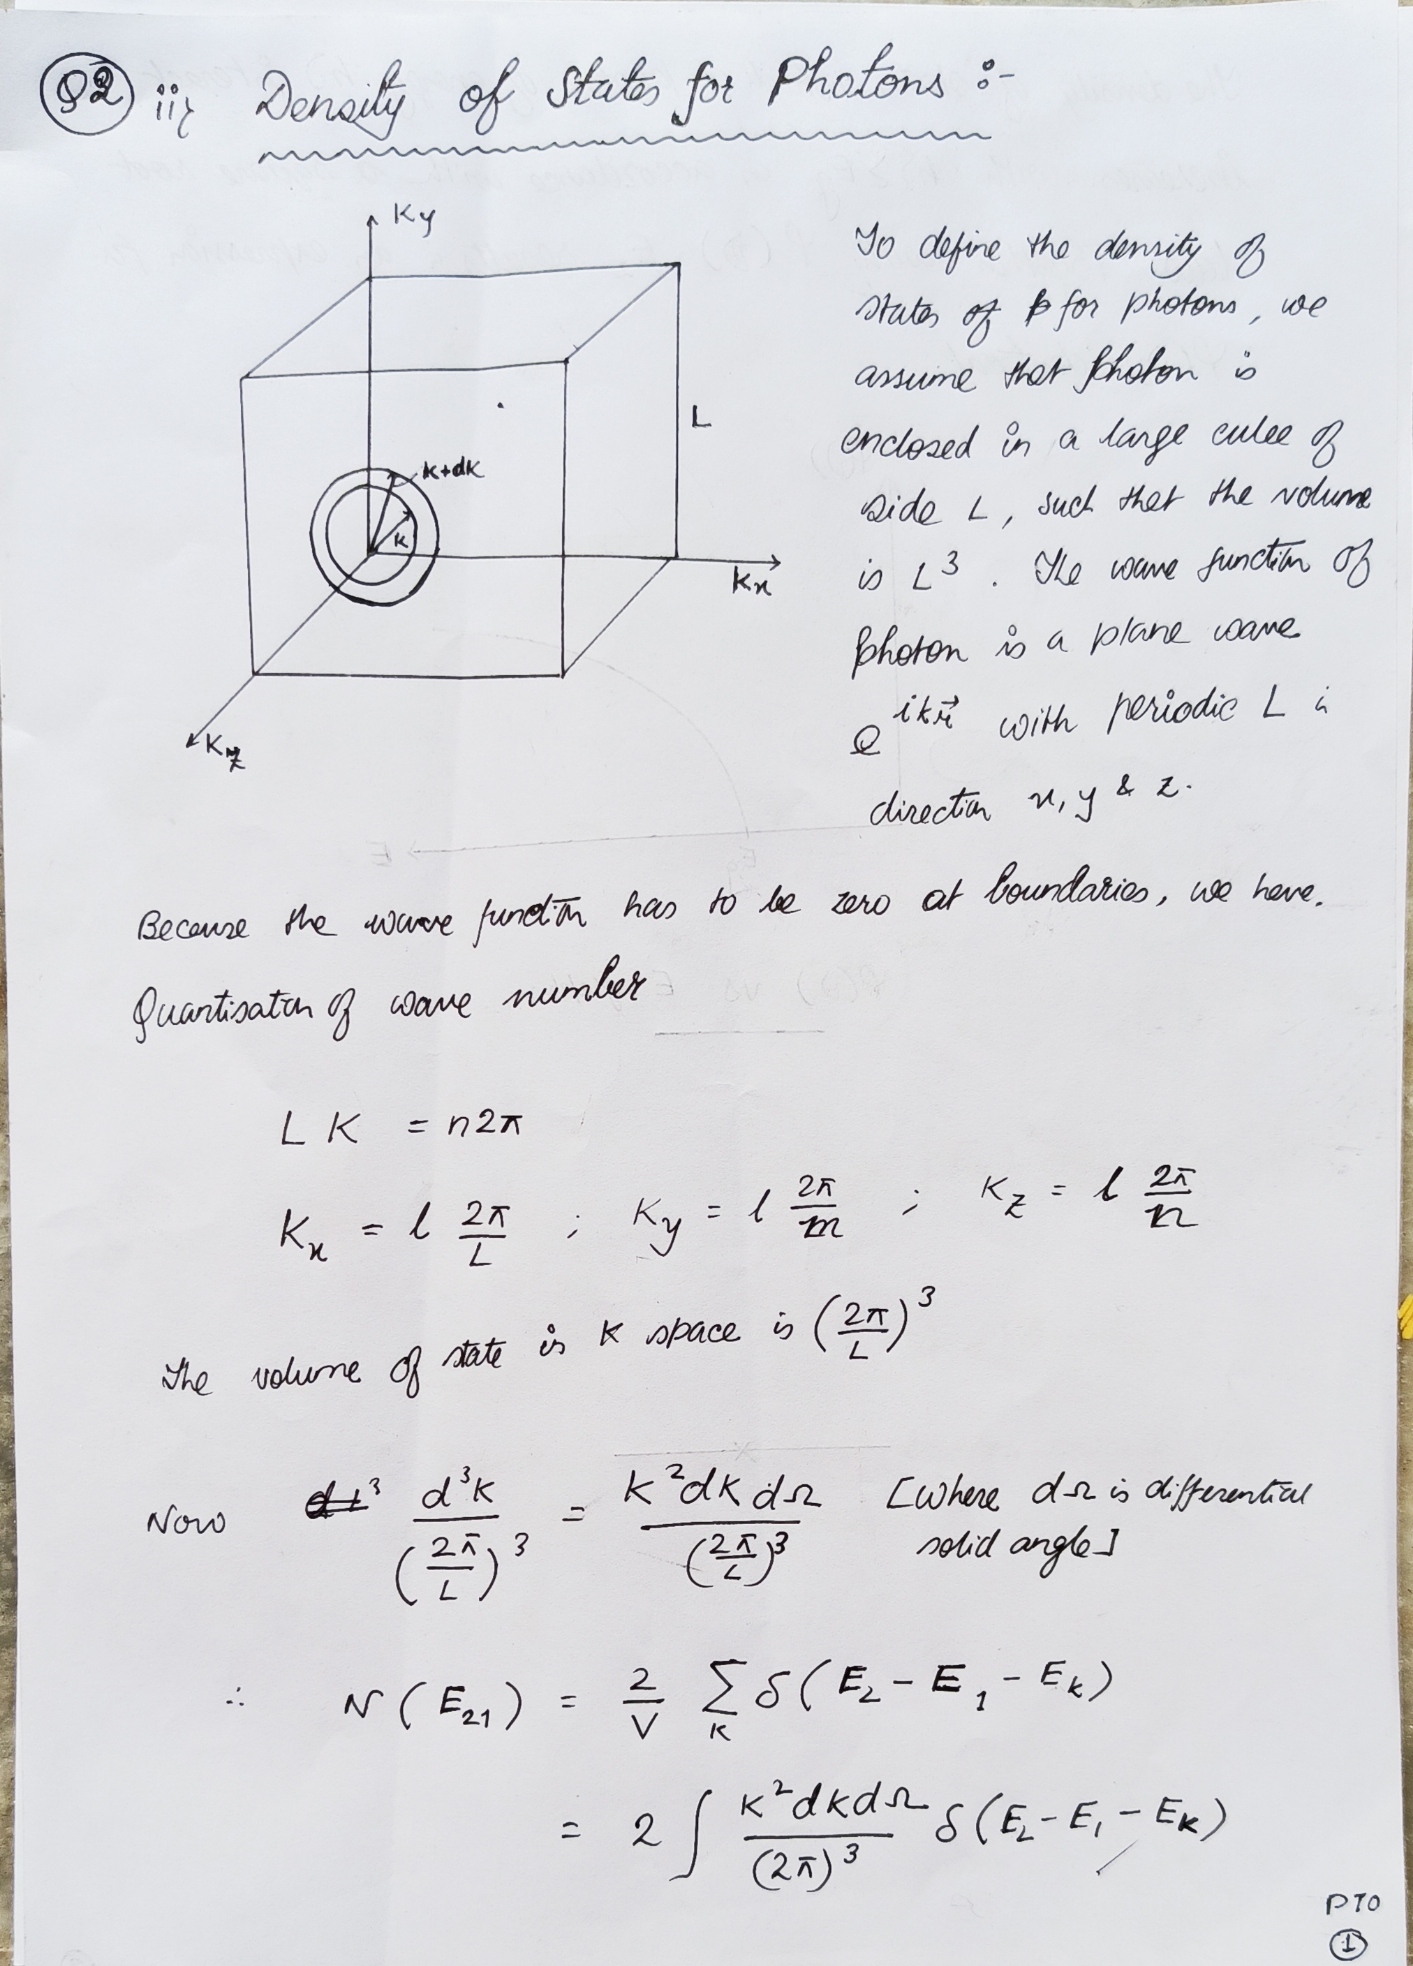 Q2 ii} Density of States for Photons :-
Ky
L
K+dK
K
Kx
Kz
To define the density of
states of for photons, we
assume that photon is
enclosed in a large cube of
side L, such that the volume
is L³. The wave function of
photon is a plane wave
e^{ik\vec{r}} with periodic L in
direction x, y & z.
Because the wave function has to be zero at boundaries, we have.
Quantisation of wave number
L K = n2π
Kx = l 2π/L ; Ky = l 2π/m ; Kz = l 2π/n
The volume of state is K space is (2π/L)³
Now d³K/(2π/L)³ = K²dK dΩ/(2π/L)³ [Where dΩ is differential
solid angle]
∴ N(E₂₁) = 2/V Σ_K δ(E₂ - E₁ - E_K)
= 2 ∫ K²dKdΩ/(2π)³ δ(E₂ - E₁ - E_K)
PTO
1